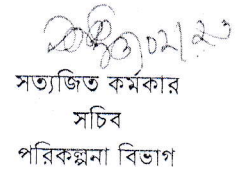 সত্যজিত কর্মকার
সচিব
পরিকল্পনা বিভাগ